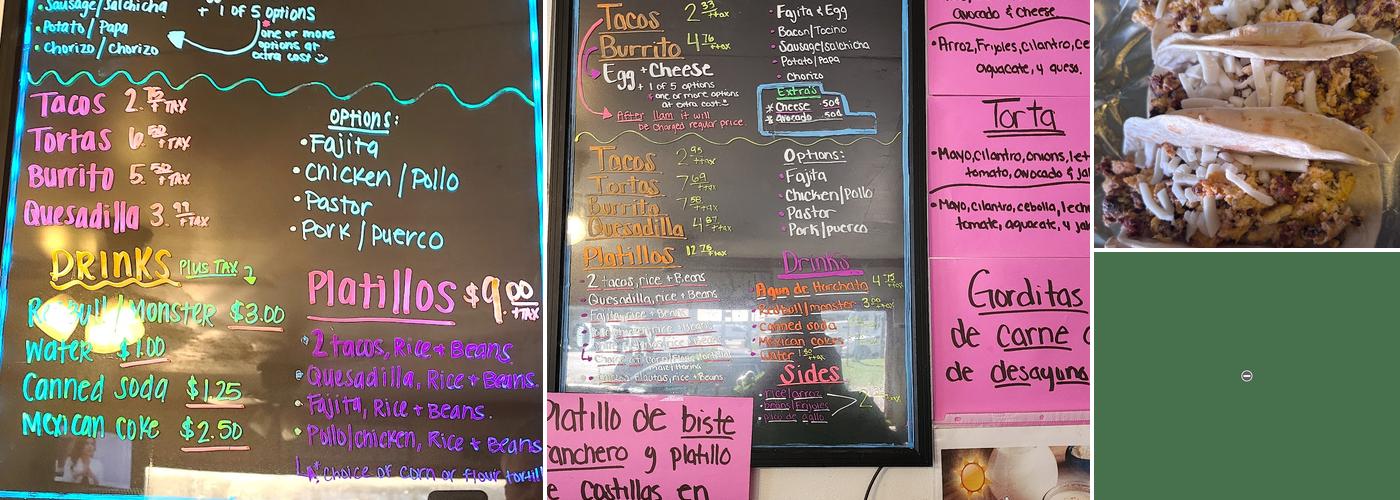 Sausage/Salchicha
Potato/Papa
Chorizo/chorizo
+ 1 of 5 options
one or more
options at
extra cost
Tacos 2.75 +TAX
Tortas 6.50 +TAX
Burrito 5.50 +TAX
Quesadilla 3.99 +TAX
OPTIONS:
Fajita
Chicken/Pollo
Pastor
Pork/puerco
DRINKS PLUS TAX
RedBull/Monster $3.00
Water $1.00
Canned soda $1.25
Mexican coke $2.50
Platillos $9.00 +TAX
2 tacos, Rice + Beans
Quesadilla, Rice + Beans.
Fajita, Rice + Beans.
Pollo/chicken, Rice + Beans
choice of corn or flour tortill
Tacos 2.33 +tax
Burrito 4.76 +tax
Egg + Cheese
+ 1 of 5 options
one or more options
at extra cost
After 11am it will
be charged regular price.
Fajita & Egg
Bacon/Tocino
Sausage/salchicha
Potato/Papa
Chorizo
Extra's
* Cheese .50¢
* avocado .50¢
Tacos 2.95 +tax
Tortas 7.69 +tax
Burrito 7.58 +tax
Quesadilla 4.87 +tax
Platillos 12.75 +tax
2 tacos, rice + Beans
Quesadilla, rice + Beans
Fajita, rice + Beans
Options:
Fajita
Chicken/Pollo
Pastor
Pork/puerco
Drinks
Agua de Horchata 4.75
Redbull/monster 3.00
Canned soda
Mexican coke
Water
Sides
rice/arroz
beans/Frijoles
pico de gallo
Platillo de biste
anchero y platillo
e Costillas en
avocado & cheese
Arroz, Frijoles, cilantro, ce
aguacate, y queso.
Torta
Mayo, cilantro, onions, let
tomato, avocado & ja
Mayo, cilantro, cebolla, lech
tomate, aguacate, y ja
Gorditas
de carne
de desayuno